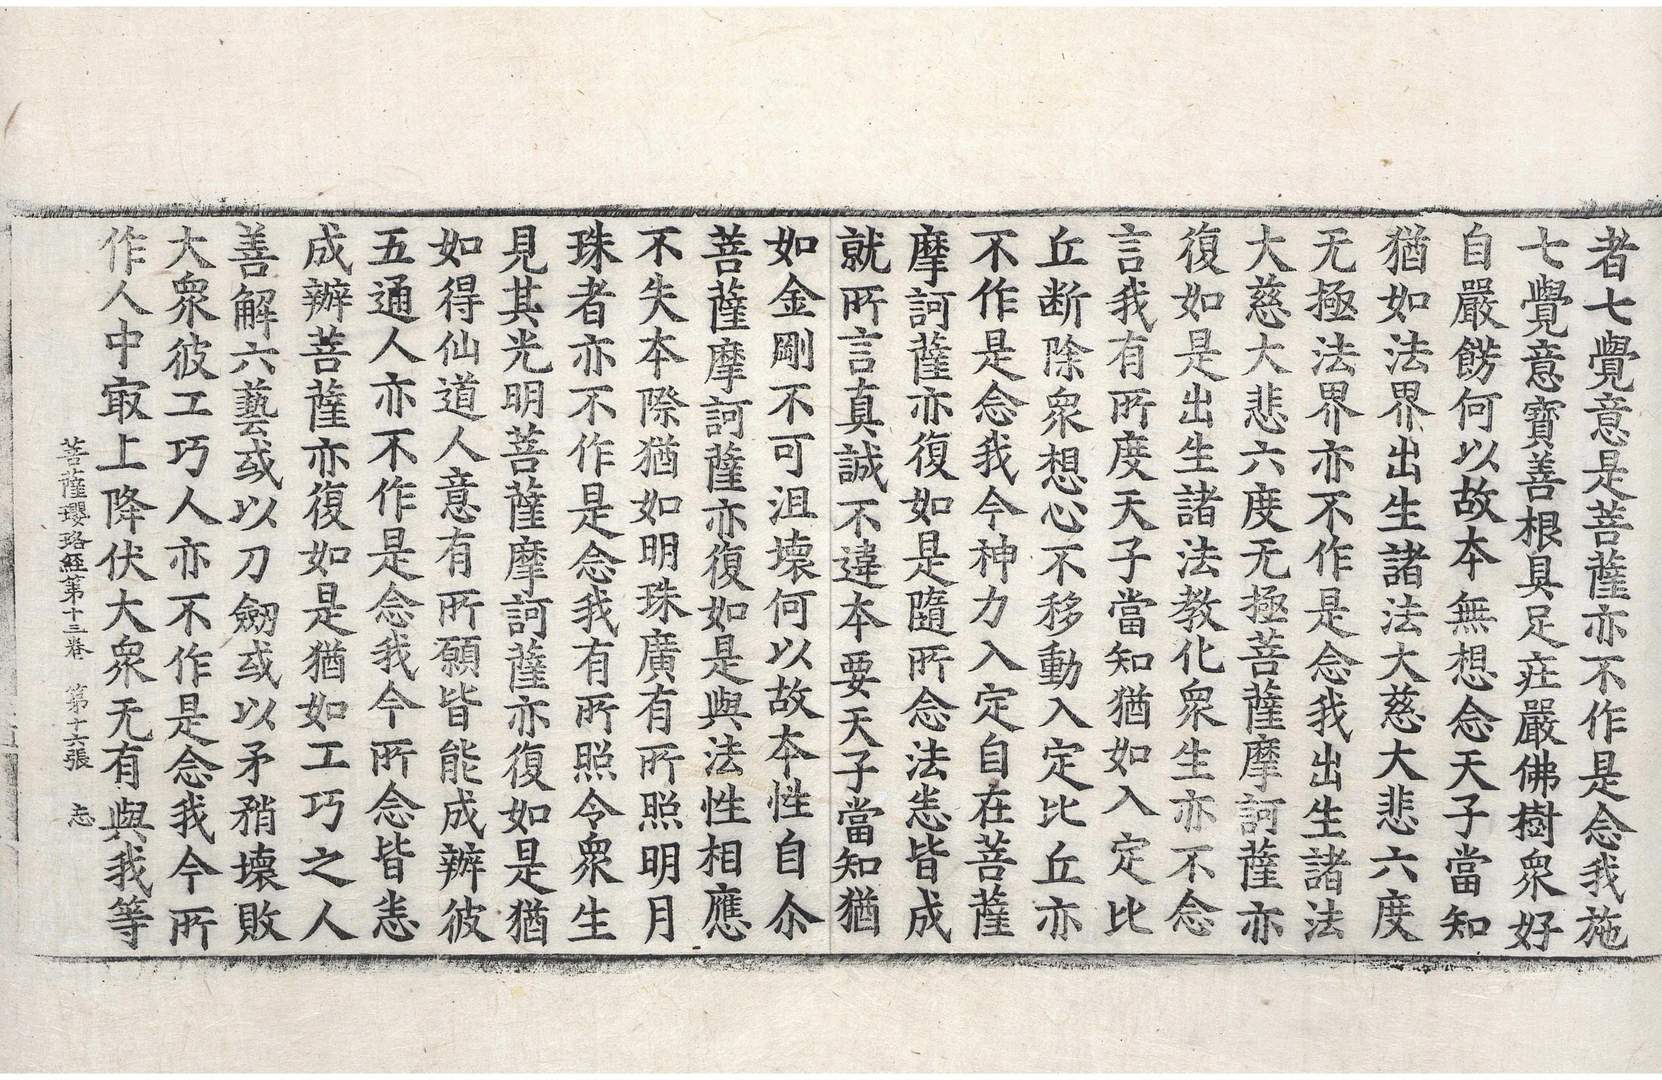 者七覺意是菩薩亦不作是念我施
七覺意寶善根具足庄嚴佛樹衆好
自嚴餝何以故本無想念天子當知
猶如法界出生諸法大慈大悲六度
无極法界亦不作是念我出生諸法
大慈大悲六度无極菩薩摩訶薩亦
復如是出生諸法教化衆生亦不念
言我有所度天子當知猶如入定比
丘断除衆想心不移動入定比丘亦
不作是念我今神力入定自在菩薩
摩訶薩亦復如是隨所念法恙皆成
就所言真誠不違本要天子當知猶
如金剛不可沮壞何以故本性自尒
菩薩摩訶薩亦復如是與法性相應
不失本際猶如明珠廣有所照明月
珠者亦不作是念我有所照令衆生
見其光明菩薩摩訶薩亦復如是猶
如得仙道人意有所願皆能成辦彼
五通人亦不作是念我今所念皆恙
成辦菩薩亦復如是猶如工巧之人
善解六藝或以刀劒或以矛矟壞敗
大衆彼工巧人亦不作是念我今所
作人中㝡上降伏大衆无有與我等
菩薩瓔珞經第十三卷 第十六張 志